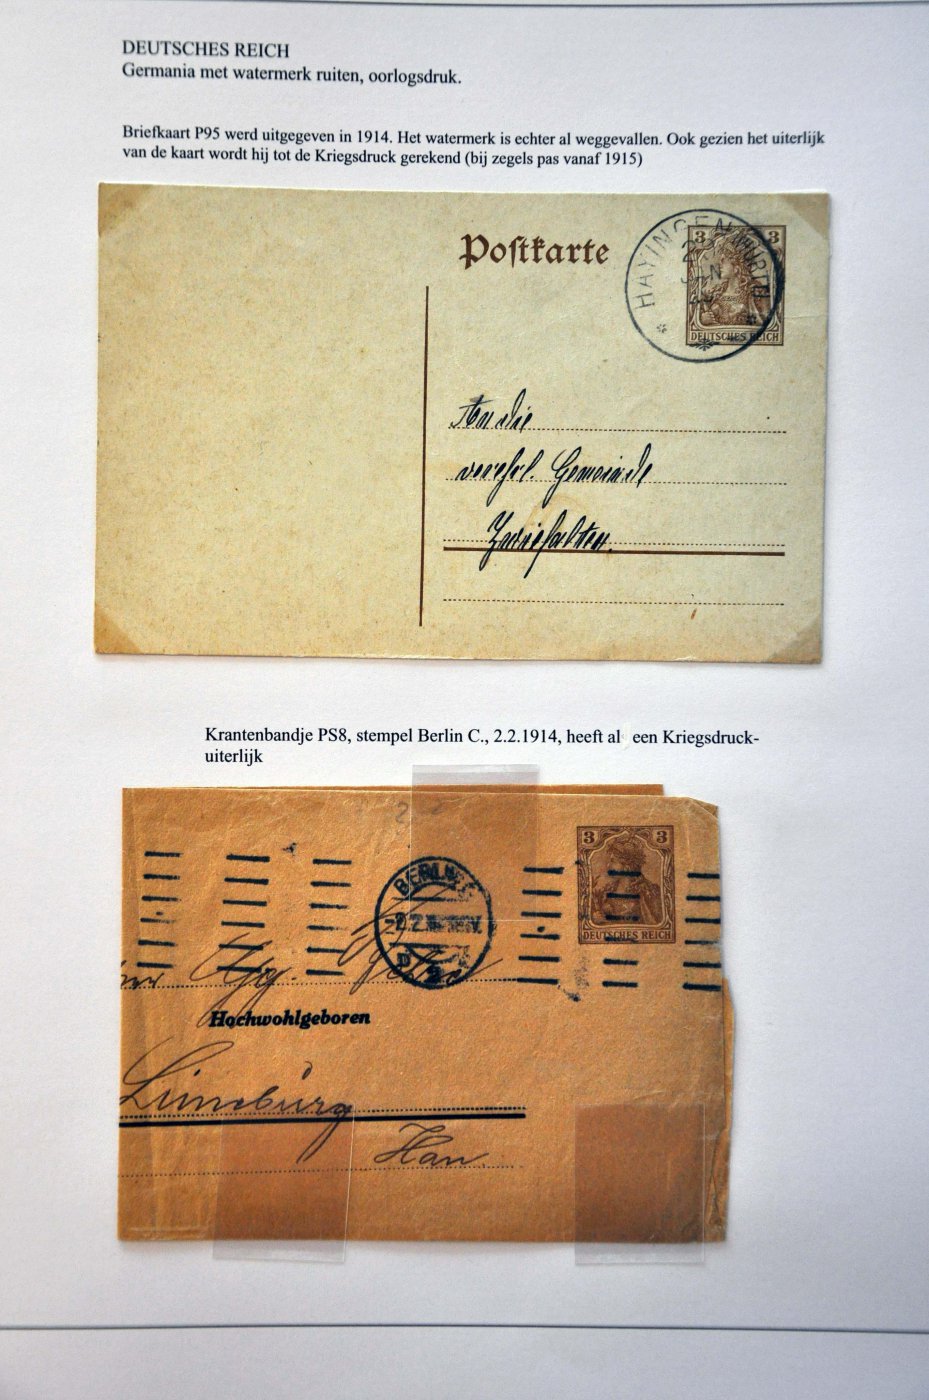 DEUTSCHES REICH
Germania met watermerk ruiten, oorlogsdruk.
Briefkaart P95 werd uitgegeven in 1914. Het watermerk is echter al weggevallen. Ook gezien het uiterlijk
van de kaart wordt hij tot de Kriegsdruck gerekend (bij zegels pas vanaf 1915)
Postkarte
HAYINGEN (WÜRTT)
JAN
3 3
DEUTSCHES REICH
An die
verehrl. Gemeinde
Zwiefalten.
Krantenbandje PS8, stempel Berlin C., 2.2.1914, heeft al een Kriegsdruck-
uiterlijk
BERLIN C
-2.2.
3 3
DEUTSCHES REICH
Hochwohlgeboren
Lüneburg
Han.